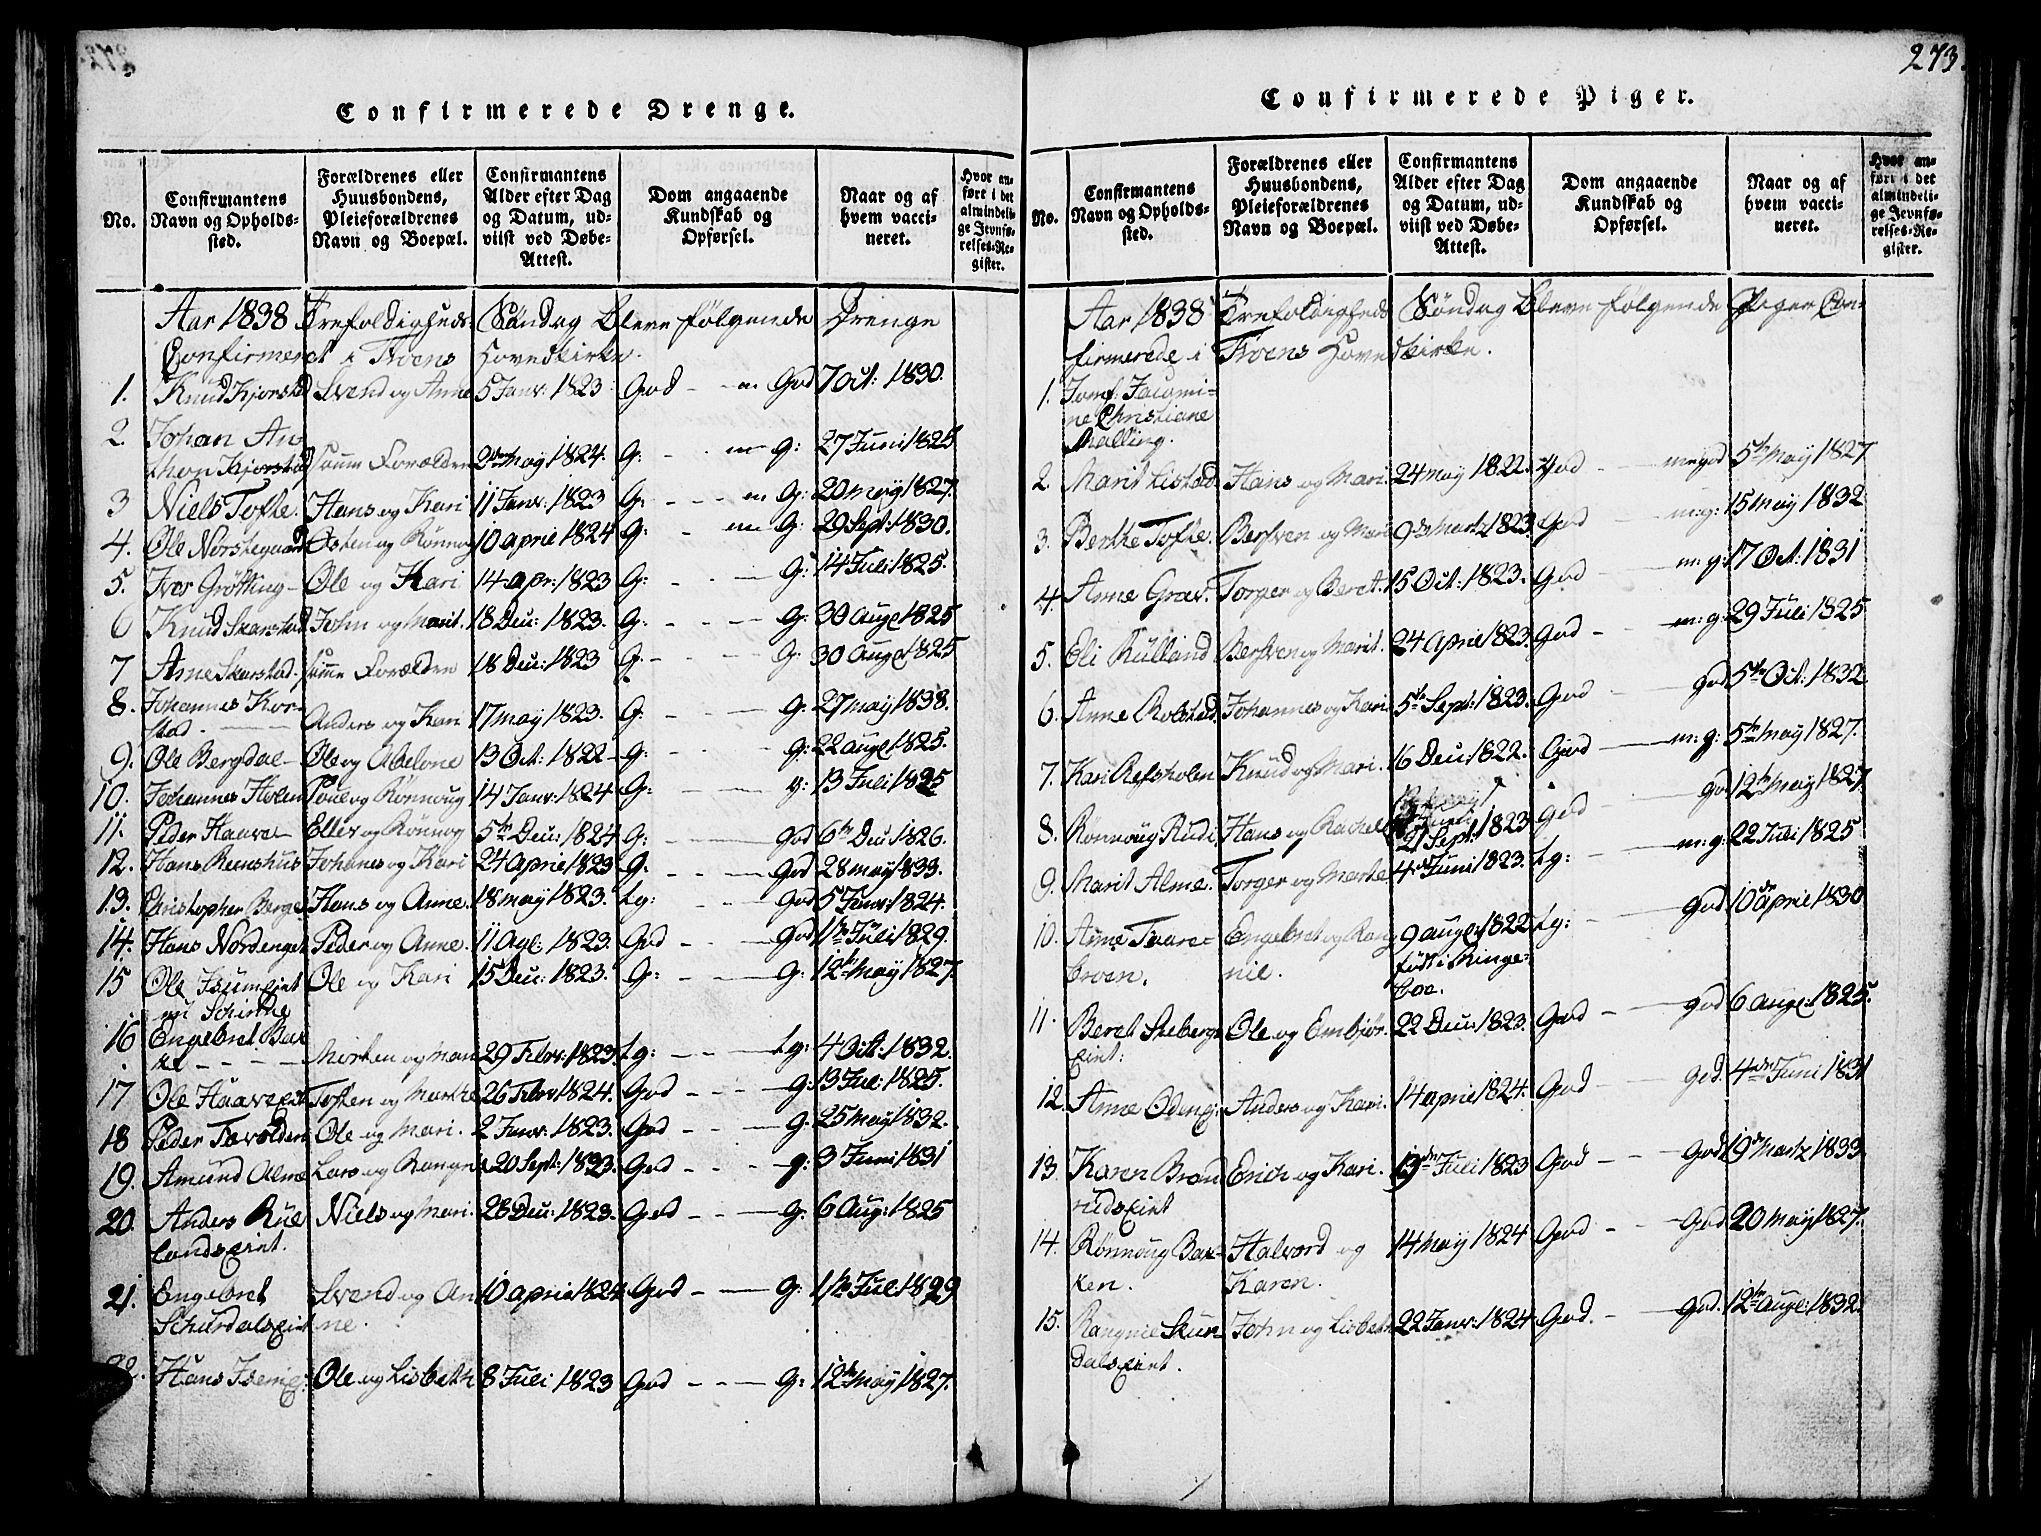 273.
Confirmerede Drenge.
No.
Confirmantens Navn og Opholdssted.
Forældrenes eller Huusbondens, Pleieforældrenes Navn og Boepæl.
Confirmantens Alder efter Dag og Datum, udviist ved Døbe-Attest.
Dom angaaende Kundskab og Opførsel.
Naar og af hvem vaccineret.
Hvor anført i det almindelige Jevnførelses-Register.
Aar 1838 Trefoldigheds Søndag bleve følgende Drenge
Confirmeret i Froens Hovedkirke.
1. Knud Kjorstad Svend og Anne 5 Janv: 1823 God - m God 7 Oct: 1830.
2. Johan An-
thon Kjorstad samme Forældre 2den May 1824. G: - m G: 27 Juni 1825
3 Niels Tofte. Hans og Kari 11 Janv: 1823 G: - - - m G: 20 May 1827.
4. Ole Norstegaard Østen og Rønnog 10 april 1824 G: - m G: 29 Sept: 1830.
5. Iver Grøtting Ole og Kari 14 apr: 1823 G: - - - G: 14 Juli 1825.
6 Knud Skarstad John og Marit. 18 Dec: 1823. G: - - - G: 30 Aug 1825
7 Arne Skarstad. samme Forældre 18 Dec: 1823 G: - - G: 30 Aug 1825
8. Johannes Kor-
stad. Anders og Kari 17 may 1823. G: - - - G: 27 may 1838.
9. Ole Bergdal Ole og Abelone 13 Oct: 1822 G: - - - g: 22 aug 1825.
10. Johannes Holen Poul og Rønnoug 14 Janv: 1824 G: - - g: 13 Juli 1825
11. Peder Haave Ellev og Rønnog 5te Dec: 1824 G: - - - God 6te Dec 1826.
12. Hans Reenshus Johanes og Kari 24 april 1823 G: - - - God 28 may 1833.
13. Christopher Berge Hans og Anne. 18 may 1823. tg: - - - God 5 Janv: 1824.
14. Hans Nordenget Peder og Anne. 11 Agl: 1823. God - - God 1te Juli 1829.
15 Ole Isumeint Ole og Kari 15 Dec: 1823. G: - - - G: 12te May 1827.
16 Engebret Bak-
ke - - - Morten og Mari 29 Febr: 1823 tg: - - - tg: 4 Oct: 1832.
17 Ole Haaveeint Tosten og Marthe 26 Febr 1824. God - - - g: 13 Jul: 1825.
18 Peder Ole og Mari. 2 Janv: 1823. God - - - G: 25 May 1832.
19. Amund Alme Lars og Rangni 20 Sept: 1823. God - - - g: 3 Juni 1831
20. Anders Rul- Niels og Mari. 28 Dec: 1823. God - - - G: 6 Aug: 1825
landseint.
21. Engebret Svend og An- 10 april 1824 God - - - G: 1te Jul 1829
Schurdalseint ne.
22. Hans Isemg: Ole og Lisbeth 8 Juli 1823 God - - - G: 12te May 1827.
Confirmerede Piger.
No.
Confirmantens Navn og Opholdssted.
Forældrenes eller Huusbondens, Pleieforældrenes Navn og Boepæl.
Confirmantens Alder efter Dag og Datum, udviist ved Døbe-Attest.
Dom angaaende Kundskab og Opførsel.
Naar og af hvem vaccineret.
Hvor anført i det almindelige Jevnførelses-Register.
Aar 1838 Trefoldigheds Søndag bleve følgende Piger Con-
firmerede i Froens Hovedkirke.
1. Jomf: Jacomi-
ne Christiane
Malling.
2. Marit Listad Hans og Mari. 24 may 1822. God - m god 5te May 1827
3. Berthe Tofte. Bersven og Mari 9de Martz 1823. God - m: g: 15 May 1832
4. Anne Grav. Torger og Beret. 15 Oct: 1823. God - m: g: 17 Oct: 1831
5. Eli Rulland Bersven og Marit. 24 April 1823. God - m: g: 29 Juli 1825
6. Anne Rolstad. Johannes og Kari 5te Sept: 1823. God - God 5te Oct: 1832
7. Kari Refsholen Knud og Mari. 16 Dec: 1822. God - m: g: 5te May 1827.
8. Rønnoug Rudi Hans og Rachel 21 Sept: 1823 God - God 12te May 1827
9. Marit Alme. Torger og Marte 4de Juni 1823. tg: - m: g: 22 Juli 1825
10. Anne Engebret og Rang- 9 aug: 1822 tg: - God 10de april 1830
nil. født i Ringe-
boe.
11. Beret Skeberg- Ole og Embjør. 22 Dec: 1823. God - God 6 aug: 1825.
eint:
12. Anne Odeng: Anders og Kari. 14 april 1824. God - God. 4de Juni 1831
13. Karen Bran- Erich og Kari. 13de Juli 1823 God - - God 19de Martz 1833
rudseint
14. Rønnoug Bak- Halvord og 14 May 1824 God - - God 20 May 1827.
ken. Karen.
15. Rangnil Skur- John og Lisbeth 22 Janv: 1824 God. - God. 12te Aug: 1832.
dalseint.